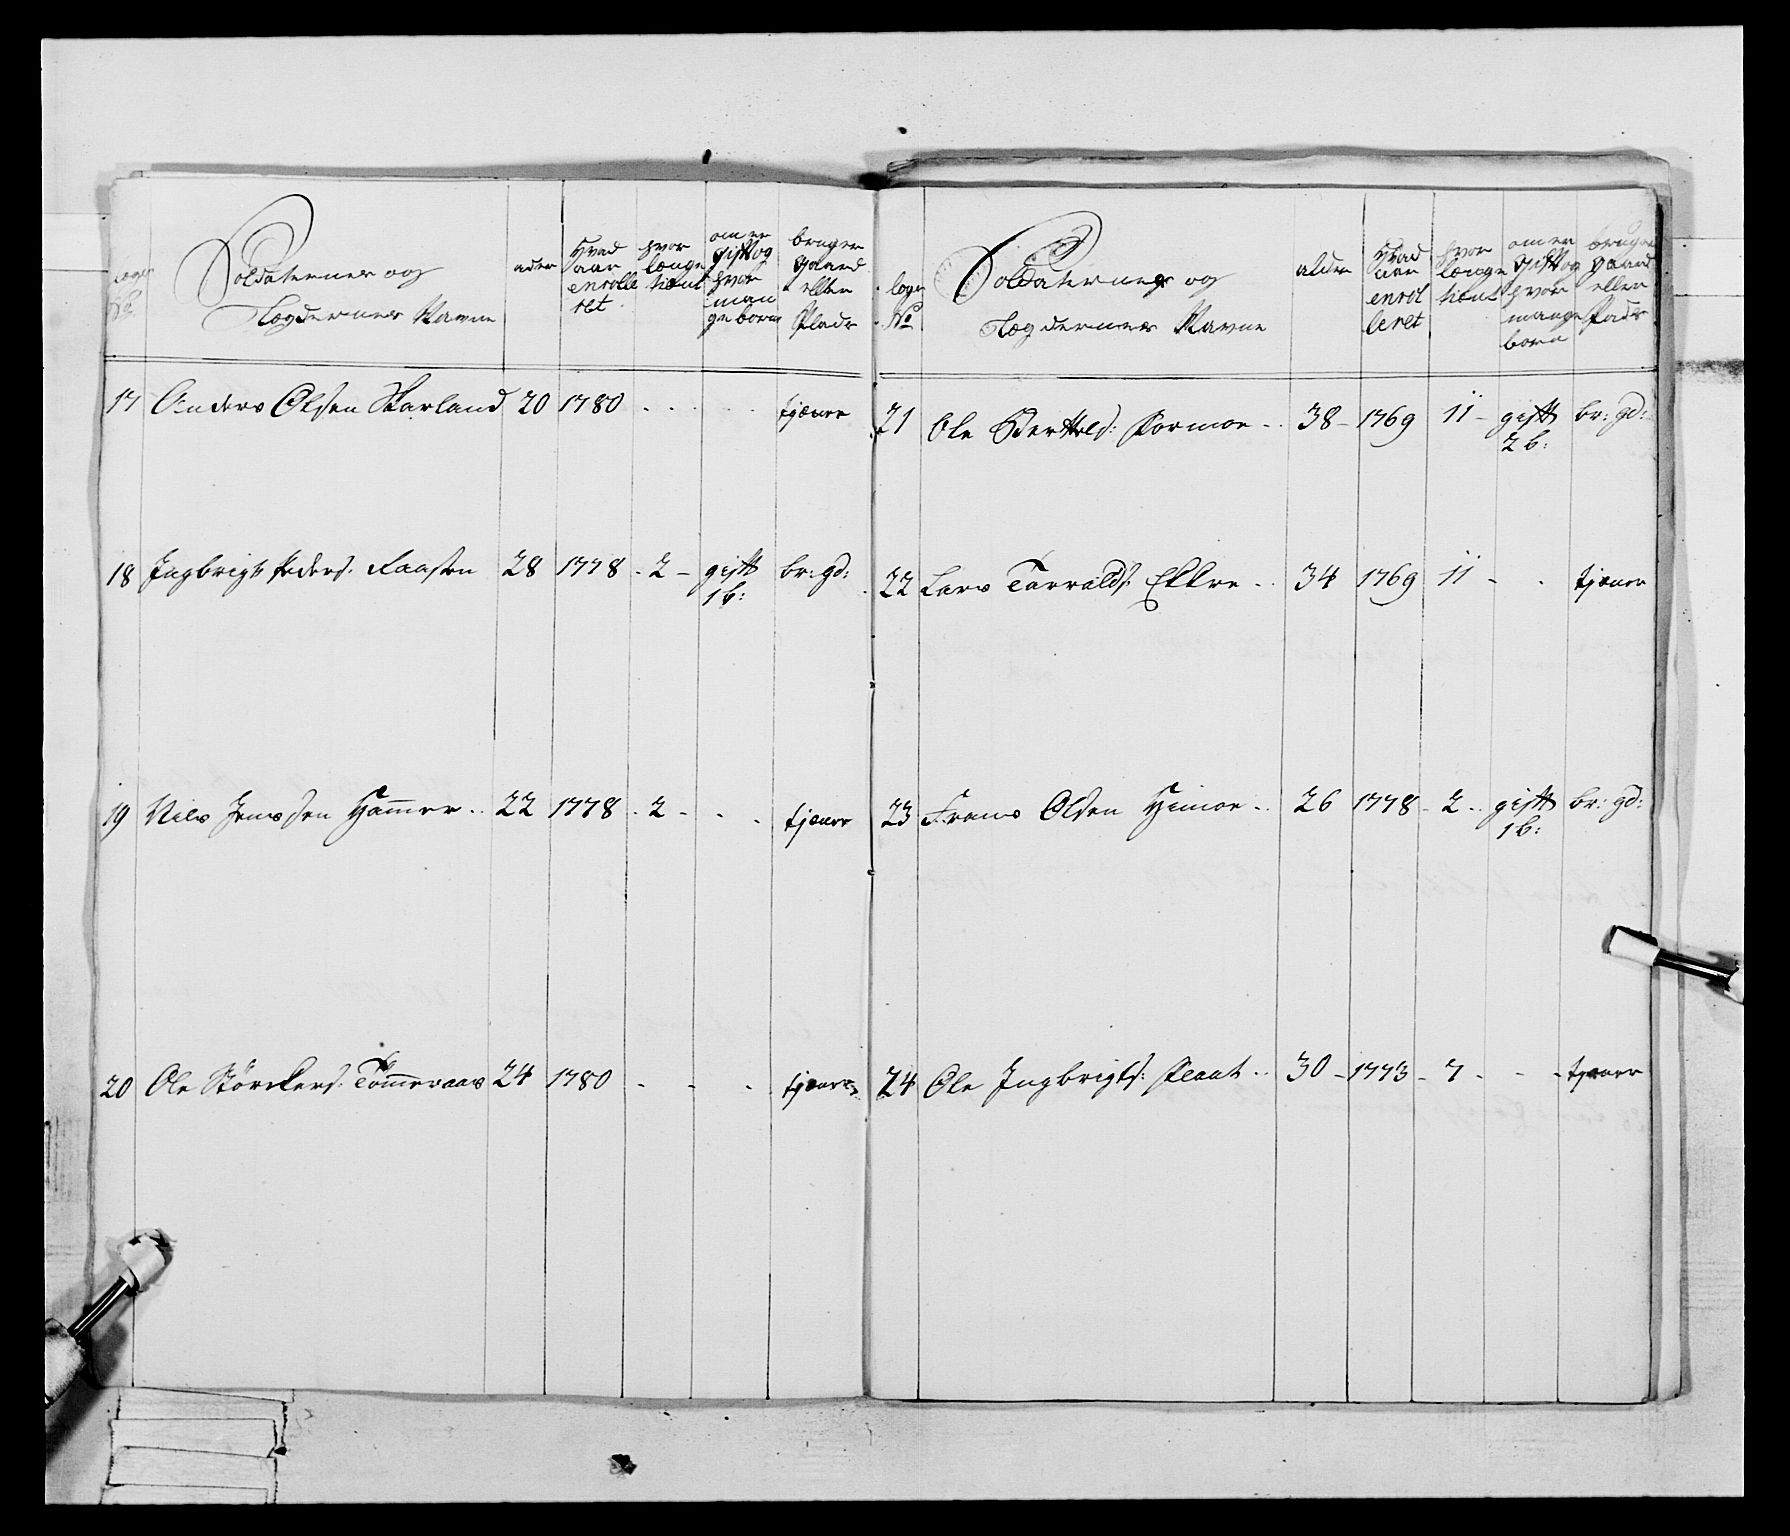 lægs No
Soldaternes og
Lægdernes Navne
alder
Hvad aar enrolle ret
hvor længe tient
om er gift og hvor man ge børn
bruger gaard eller Plads
17 Anders Olsen Skarland 20 1780 . . . . . tjæner
18 Ingbrigt Peders: Faasten 28 1778 . 2 – gift br: gd:
1 b:
19 Nils Jens Sen Ham̅er .. 22 1778 . 2 - . . tjæner
20 Ole Størckers: Tøm̅eraas 24 1780 . - . tjæner
lægs No
Soldaternes og
Lægdernes Navne
alder
Hvad aar enrol leret
hvor længe tient
om er gift og hvor mange børn
bruger gaard eller Pads
21 Ole Berthels: Formoe - . 38 – 1769 11 – gift br: gd:
2 b:
22 Lars Tarralds: Ekkre - . 34 1769 11 - . tjæner
23 Frans Olsen Himoe - . 26 1778 - 2 - . gift br: gd:
1 b:
24 Ole Ingbrigts: Plaat .. 30 – 1773 - 7 - - - tjæner